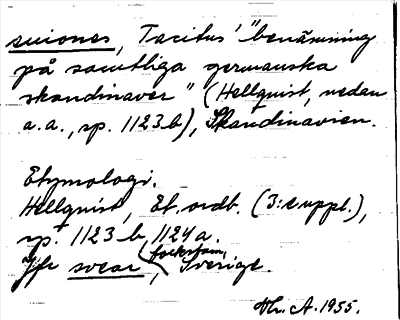 suiones, Tacitus' "benämning
på samtliga germanska
skandinaver" (Hellquist, nedan
a.a., sp. 1123 b), Skandinavien.
Etymologi.
Hellquist, Et. ordb. (3:e uppl.),
sp. 1123 b, 1124 a.
Jfr svear (folkstam), Sverige.
A. 1955.